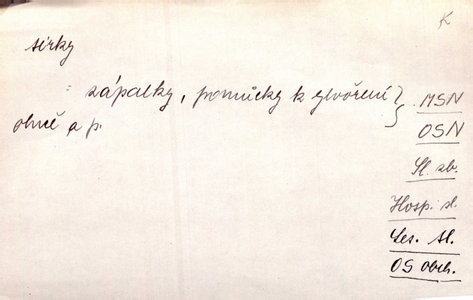 K
sirky
: zápalky, pomůcky k ytvoření }
ohně a p.
MSN
OSN
Sl. zb.
Hosp. sl.
Les. sl.
OS obch.